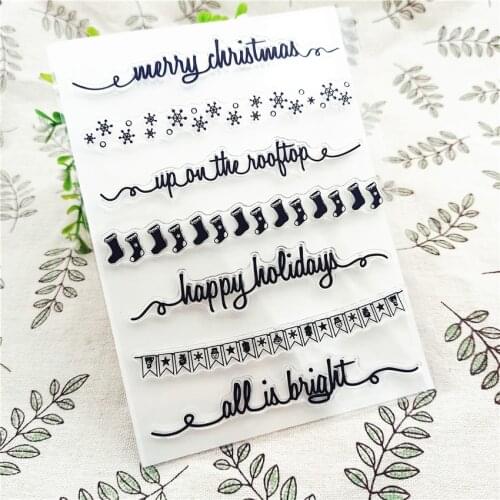 merry christmas
up on the rooftop
happy holidays
all is bright